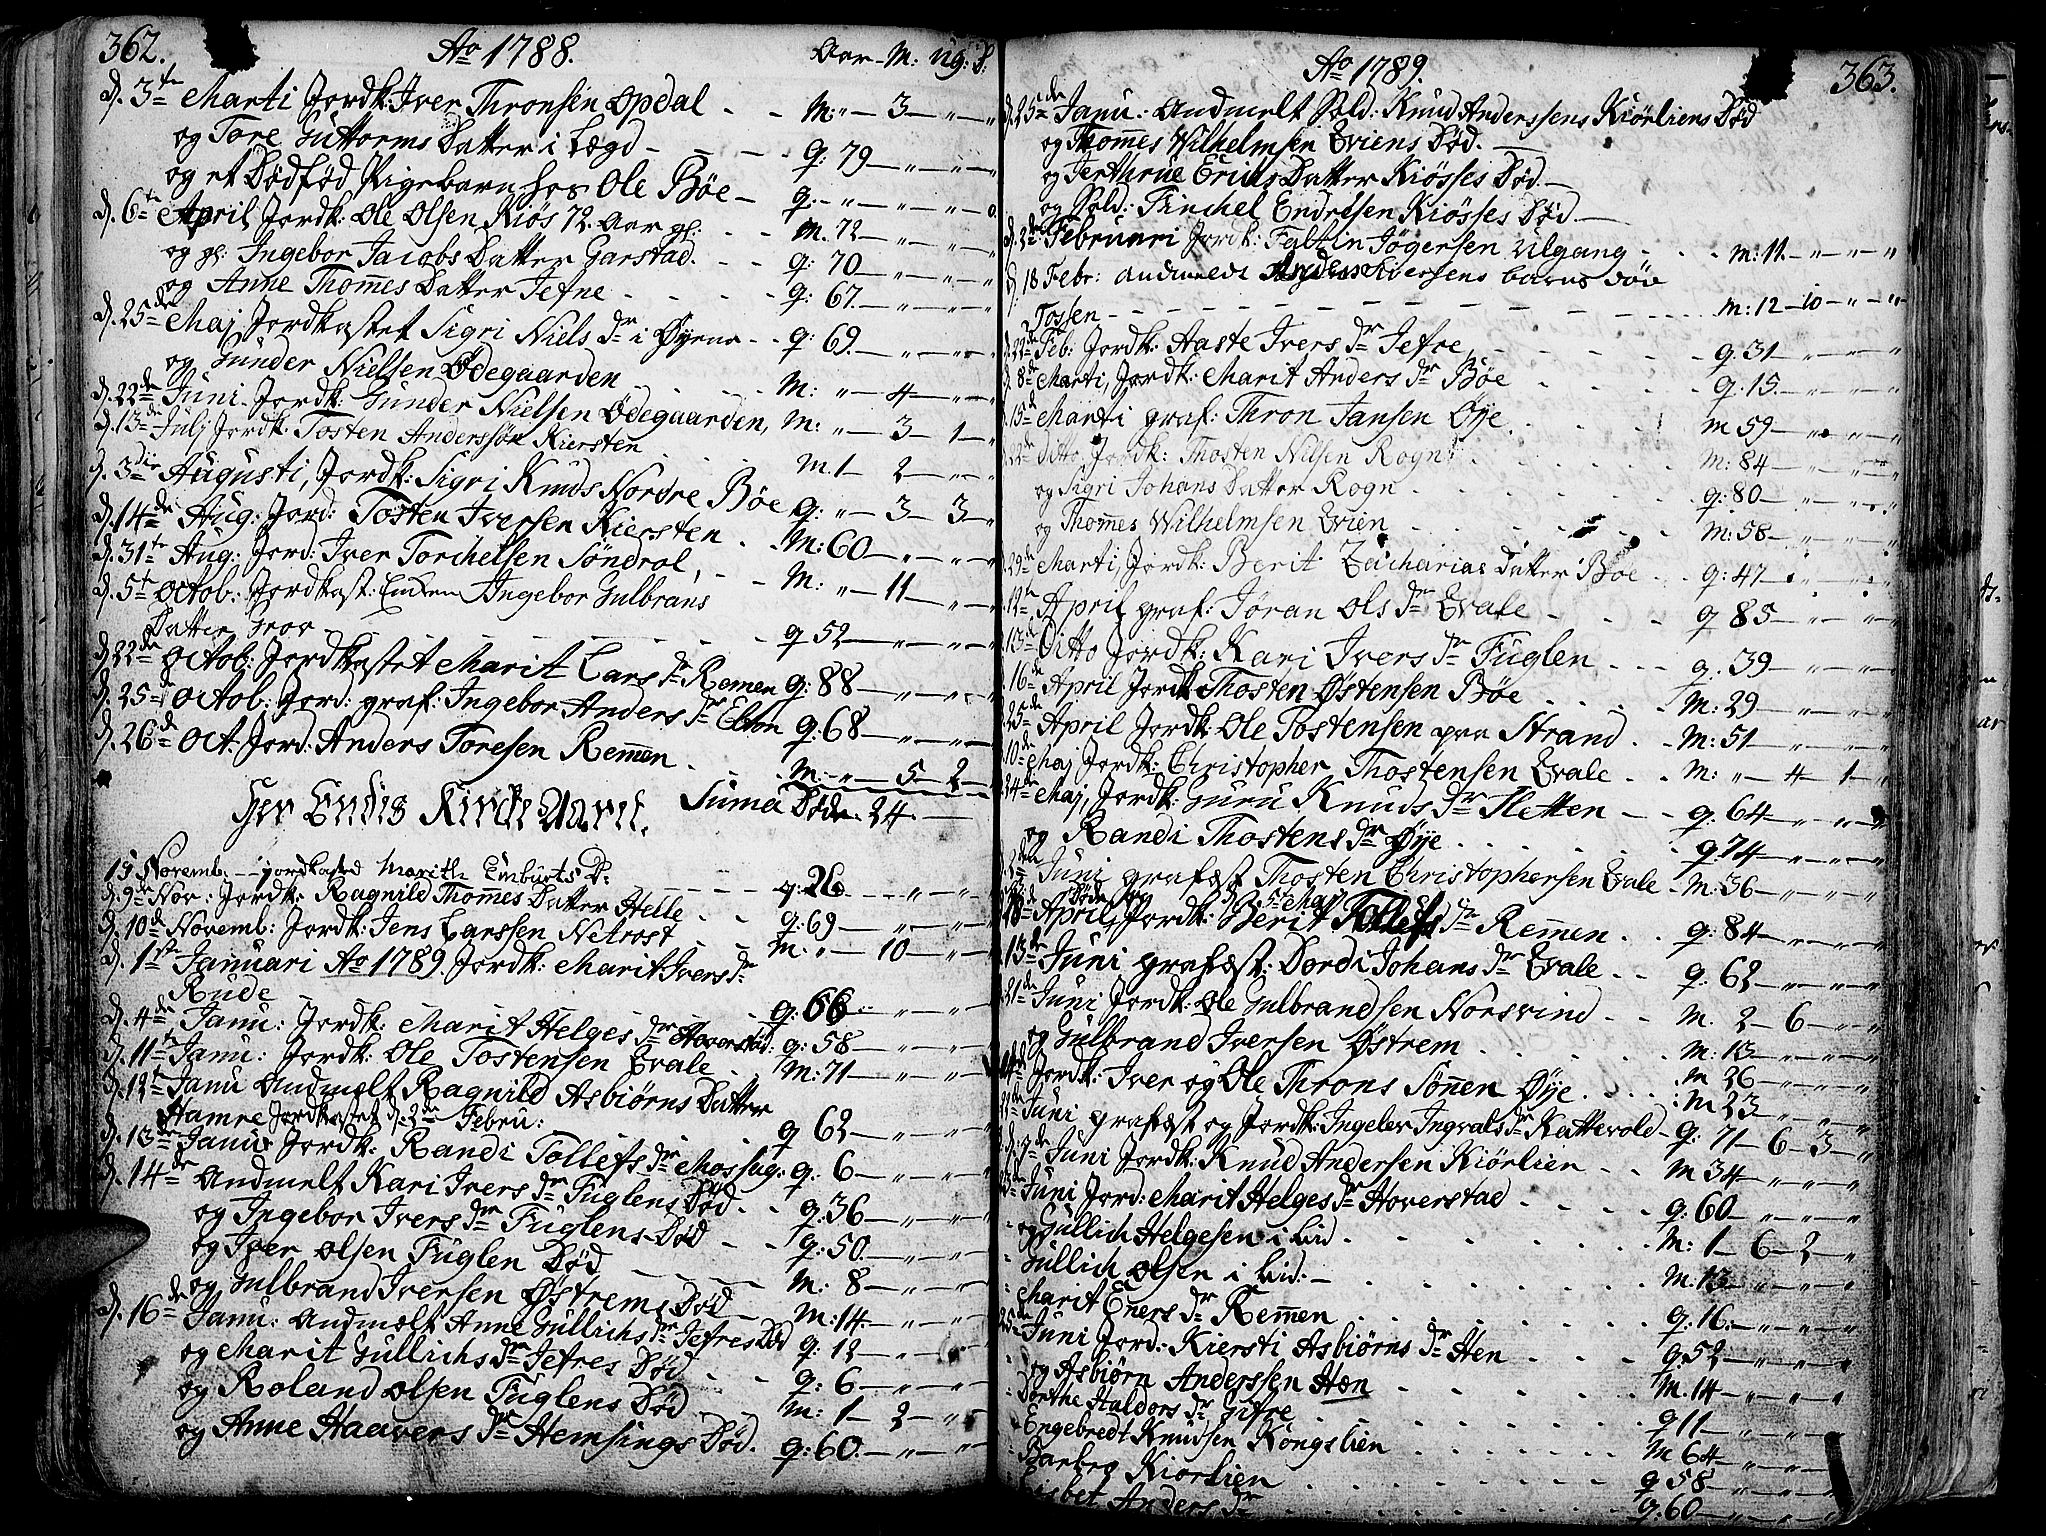 362.
Ao 1788.
Aar - M: ug: d:
d. 3te Marti Jordk: Iver Thronsen Opdal - - M: " - 3 - " - "
og Tore Guttorms Datter i Lægd - - - - q: 79 - " - " - "
og et Dødfød Pigebarn hos Ole Bøe - q. - " - " - " - 0
d. 6te April Jordk: Ole Olsen Kiøs 72. Aar gl: - - M. 72 - " - " - "
og gl: Ingebor Jacobs Datter Garstad. - - q: 70 - " - " - "
og Anne Thom̄es Datter Jefne - - - - q: 67. - " - " - "
d. 25de Maj Jordkastet Sigri Niels dr i Øyena - - q: 69. - " - " - "
og Gunder Nielsen Ødegaarden - - - - M: " - 4 - " - "
d. 22de Juni Jordk: Gunder Nielsen Ødegaarden, M: " - 3 - 1 - "
d. 13de Julj Jordk: Tosten Anderssøn Kiersten M. 1 - 2 - " - "
d. 3die Augusti, Jordk: Sigri Knuds Nordre Bøe q: " - 3 - 3 - "
d. 14de Aug: Jord: Tosten Iversen Kiersten - M: 60 - " - " - "
d. 31te Aug: Jord: Iver Torchelsen Søndrol, - - M: " - 11 - " - "
d. 5te Octob: Jordkast: Enken Angebor Gulbrans
Datter Grov - - - - q 52 - " - " - "
d. 22de Octob: Jordkastet Marit Lars dr Remen q: 88 - " - " - "
d. 25de Octob: Jord: graf: Ingebor Anders dr Elton q: 68 - " - " - "
d. 26de Oct. Jord: Anders Toresen Rem̄en - - M: - " - 5 - 2 -
Her Endis Kirke Aaret. Suma Døde. 24. -
15 Novemb: - jordkasted Marith Emburts D: - - - q. 26 - " - "
d. 9de Nov: Jordk: Ragnild Thom̄es Datter Helle - - q: 69 - " - " - "
d. 10de Novemb: Jordk: Jens Larssen Netrost - - M: " - 10 - " - "
d. 1ste Januari Ao 1789. Jordk: Marit Ivers dr
Rude - - - - q: 66 - " - " - "
d. 4de Janu: Jordk: Marit Helges dr Hoverstad: q: 58 - " - " - "
d. 11te Janu: Jordk: Ole Tostensen Qvale - - M: 71 - " - " - "
d. 12te Janu Andmelt Ragnild Asbiørns Datter
Hamre Jordkastet d: 2den Febru: q 62 - " - " - "
d. 13de Janu: Jordk: Randi Tollefs dr Moshug: q. 6 - " - " - "
d. 14de Andmelt Kari Ivers dr Fuglens Død - - q: 36 - " - " - "
og Ingebor Ivers dr Fuglens Død - - q: 50. - " - " - "
og Iver Olsen Fuglen Død - - - - M: 8 - " - " - "
og Gulbrand Iversen Østrems Død - M: 14 - " - " - "
d. 16de Janu: Andmelt Anne Gullichs dr Jefres Død q: 12 - " - "
og Marit Gullichs dr Jefres Død - - q: 6 - " - " - "
og Roland Olsen Fuglens Død - - M: 1 - 2 - " - "
og Anne Haavers dr Hemsings Død. - q: 60. - " - " - "
Ao 1789.
363.
d. 25de Janu: Andmelt Sold: Knud Anderssens Kiørliens Død
og Thom̄es Wilhelmsen Qviens Død. -
og Jerthrue Erichs Datter Kiøsses Død. -
og Sold: Tirchel Endresen Kiøsses Død -
d. 2den Februari Jordk: Faltin Jøgersen Ulgang - - M: 11. - " - " - "
d. 18 Febr: andmeldt Anders Iversens barns død
Tossen - - - - M: 12 - 10 - " - "
d. 22de Feb: Jordk: Aaste Ivers dr Jefre - - - - q. 31 - " - " - "
d. 8de Marti, Jordk: Marit Anders dr Bøe - - - q. 15. - " - " - "
d. 15de Marti graf: Thron Jansen Øye - - - M 59 - " - " - "
d. 22de Ditto Jordk: Thosten Nilsen Rogn - - - M: 84 - " - " - "
og Sigri Johans Datter Rogn - - - q: 80 - " - " - "
og Thom̄es Wilhelmsen Qvien - - - M: 58 - " - " - "
d. 29de Marti, Jordk: Berit Zacharias Datter Bøe - - q: 47 - " - " - "
12te April graf: Jøran Ols dr Qvale - - - q 85 - " - " - "
13de Ditto Jordk: Kari Ivers dr Fuglen - - - q: 39 - " - " - "
16de April Jordk: Thosten Østensen Bøe - - - M: 29 - " - " - "
25de April Jordk: Ole Tostensen paa Strand - - M: 51 - " - " - "
10de Maj Jordk: Christopher Thostensen Qvale - - M: " - 4 - 1 - "
24de Maj, Jordk: Guru Knuds dr Sletten - - q. 64 - " - " - "
og Randi Thostens dr Øye - - - q 74 - " - " - "
2den Juni grafæst Thosten Christophersen Qvale - M: 36 - " - " - "
18de April Jordk: Berit Tollefs dr Rem̄en - - q: 84 - " - " - "
13de Juni grafæst: Dordi Johans dr Qvale - - q: 62 - " - " - "
21de Juni Jordk: Ole Gulbrandsen Norsvind - - M. 2 - 6 - " - "
og Gulbrand Iversen Østrem - - - M: 13 - " - " - "
Jordk: Iver og Ole Throns Søn̄en Øye - - M 26 - " - " - "
M 23 - " - " - "
Juni grafæst og Jordk: Ingeler Ingvals dr Kattevold - q: 71 - 6 - 3 - "
Juni Jordk: Knud Andersen Kiørlien - - M 34 - " - " - "
Juni Jord: Marit Helges dr Hoverstad - - - q: 60 - " - " - "
og Gullich Helgesen i Lid - - - M: 1 - 6 - 2 - "
Gullich Olsen i Lid: - - - M. 13 - " - " - "
Marit Eners dr Rem̄en - - - q: 16. - " - " - "
25de Juni Jord: Kiersti Asbiørns dr Hen - - q: 52 - " - " - "
og Asbiørn Anderssen Hæn - - - M. 14 - " - " - "
Dorthe Haldors dr Jefre - - - q 11 - " - " - "
Engebredt Knudsen Kongslien - - - M 64 - " - " - "
Barbro Kiorlien - - - q 58 - " - " - "
Anders dr - - - q: 60 - " - " - "